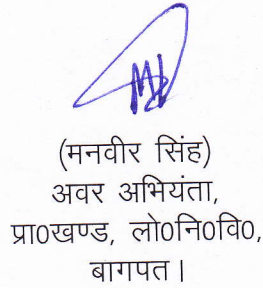 (मनवीर सिंह)
अवर अभियंता,
प्रा0खण्ड, लो0नि0वि0,
बागपत।